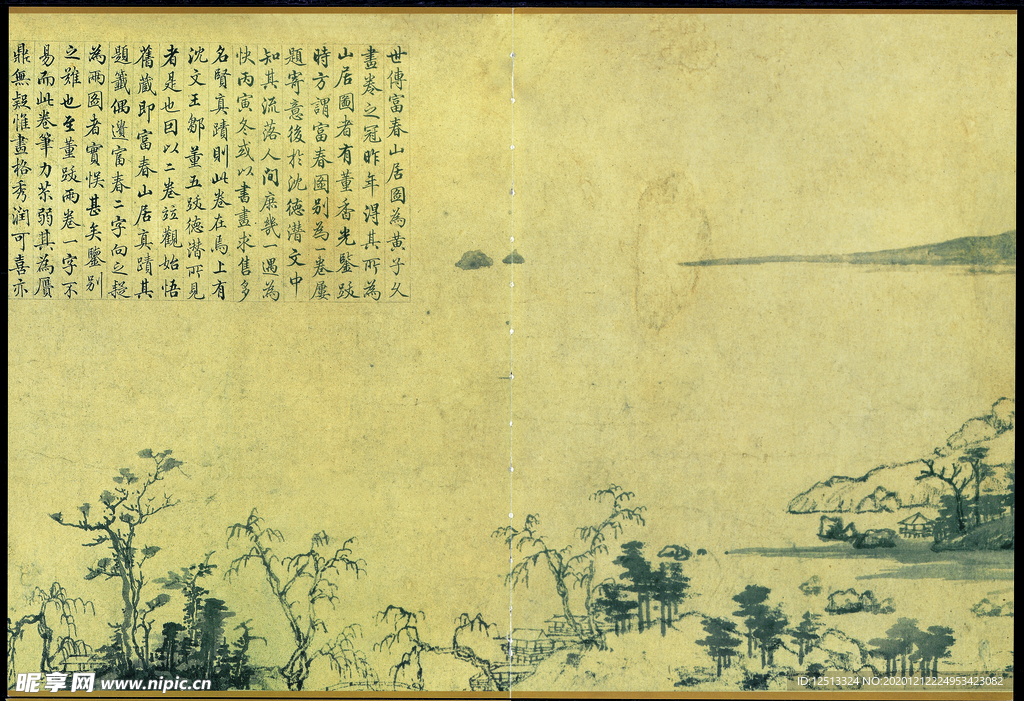 世傳富春山居圖為黃子久
畫卷之冠昨年得其所為
山居圖者有董香光鑒跋
時方謂富春圖別為一卷屢
題寄意後於沈德潛文中
知其流落人間庶幾一遇為
快丙寅冬或以書畫求售多
名賢真蹟則此卷在焉上有
沈文王鄒董五跋德潛所見
者是也因以二卷竝觀始悟
舊藏即富春山居真蹟其
題籤偶遺富春二字向之疑
為兩圖者實悞甚矣鑒別
之難也至董跋兩卷一字不
易而此卷筆力苶弱其為贗
鼎無疑惟畫格秀潤可喜亦
昵享网 www.nipic.cn
ID:12513324 NO:20201212224953423082